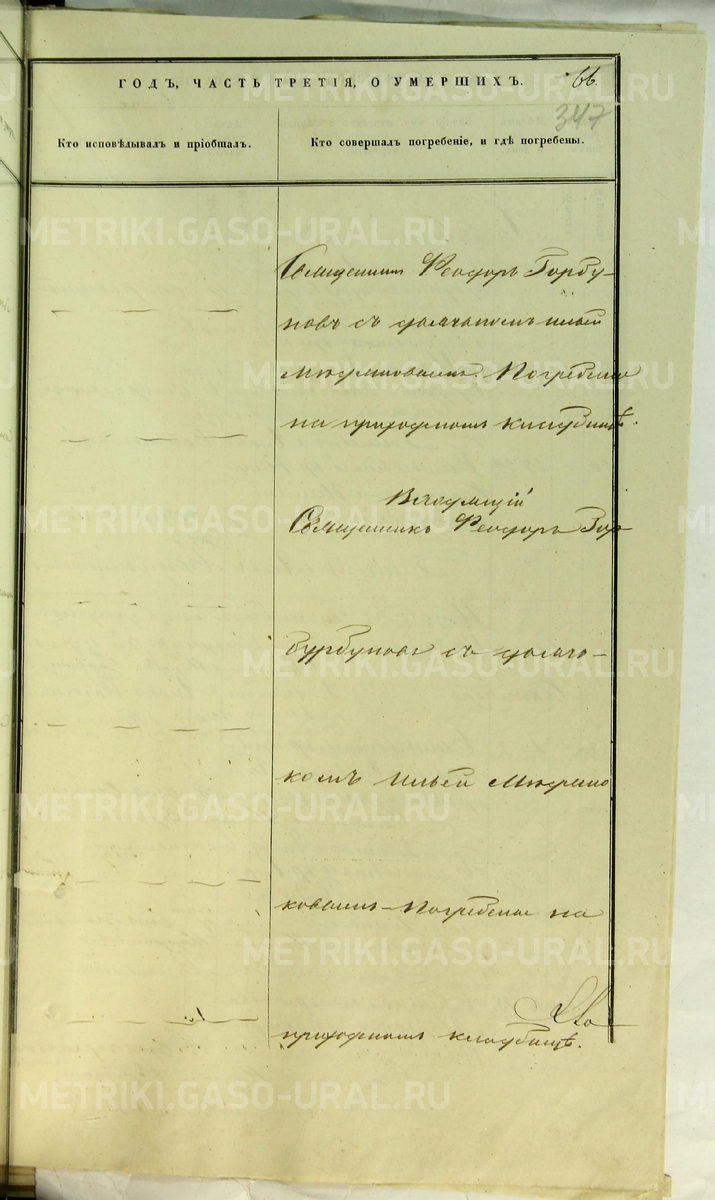 ГОДЪ, ЧАСТЬ ТРЕТІЯ, О УМЕРШИХЪ.
66.
347
Кто исповѣдывалъ и пріобщалъ.
Кто совершалъ погребеніе, и гдѣ погребены.
Священникъ Ѳеодоръ Горбу-
новъ съ дьячкомъ Ильей
Погребены
на приходскомъ кладбищѣ.
Священникъ Ѳеодоръ Гор-
бурбуновъ съ дьяч-
комъ Ильей
Погребены на
приходскомъ кладбищѣ.
METRIKI.GASO-URAL.RU